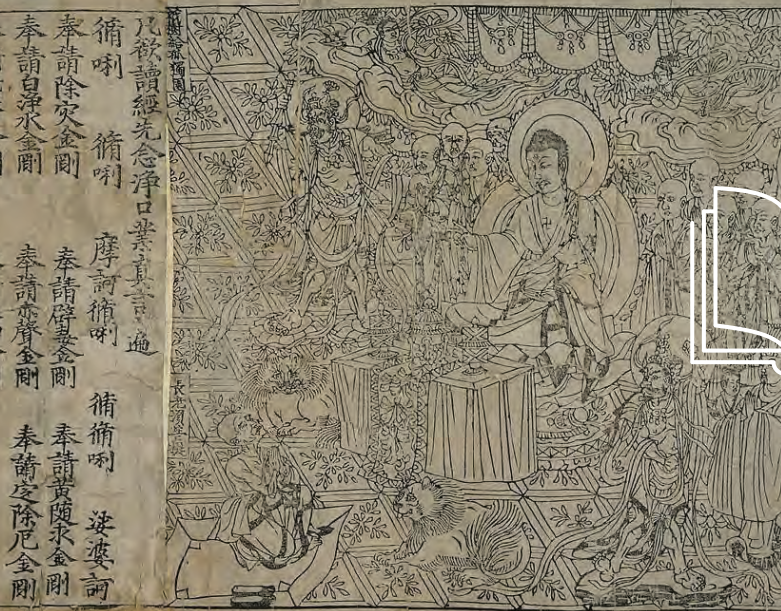 祇樹給孤獨園
長老須菩提
凡欲讀經先念淨口業真言遍
脩唎 脩唎 摩訶脩唎 脩脩唎 娑婆訶
奉請除灾金剛 奉請辟毒金剛 奉請黄随求金剛
奉請白淨水金剛 奉請赤聲金剛 奉請定除厄金剛